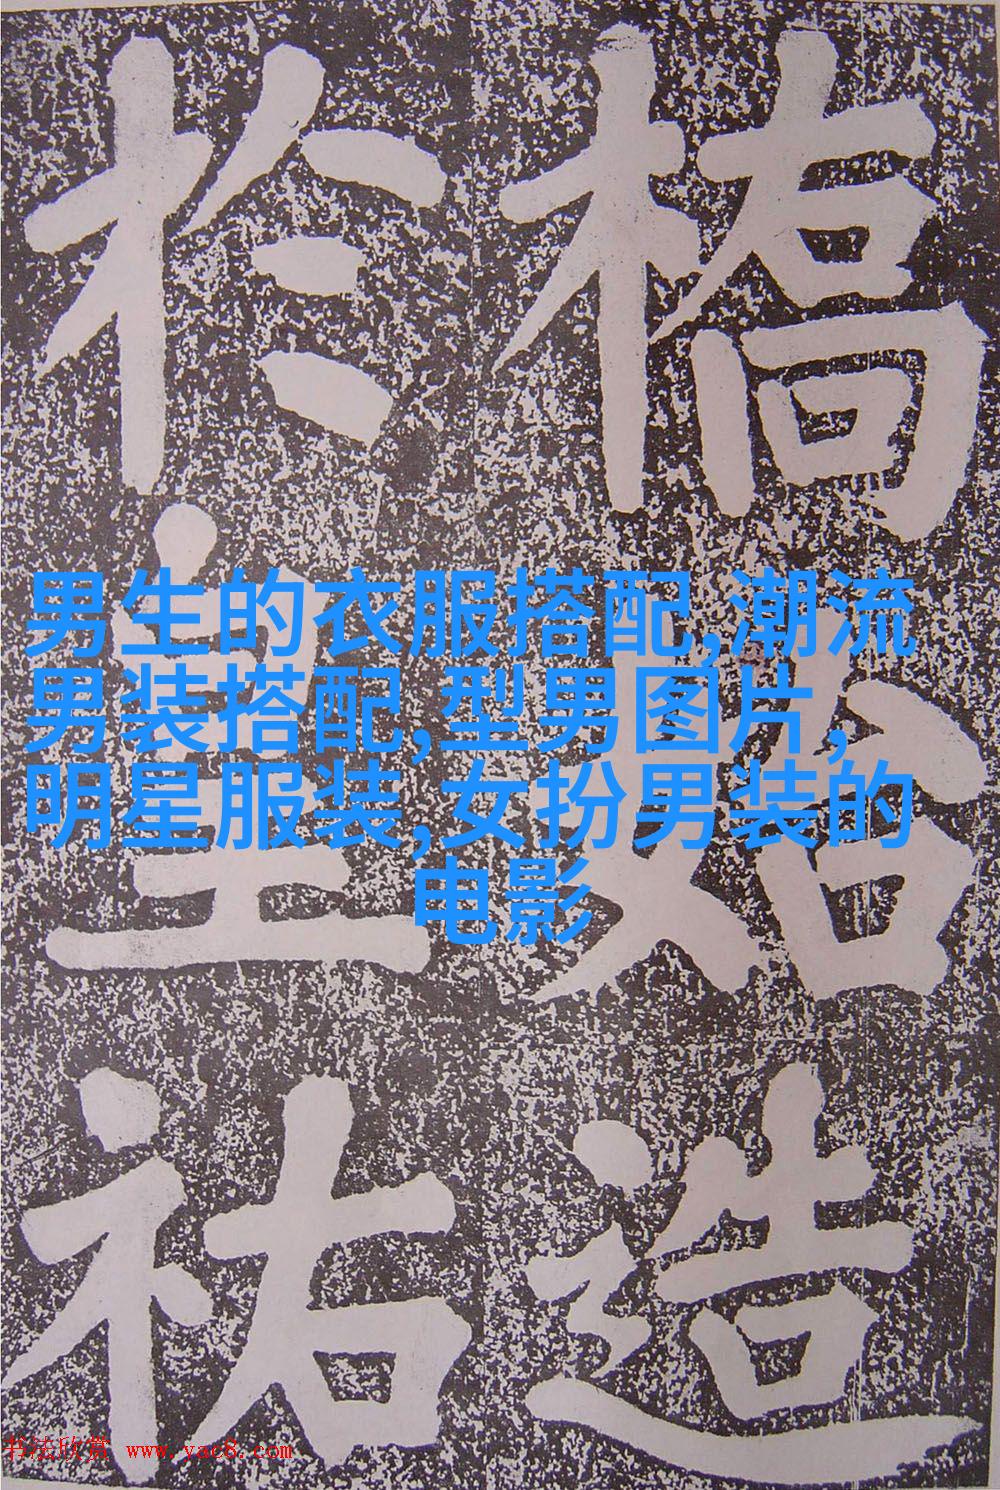 橋始造
於皇祐
男生的衣服搭配,潮流
男装搭配,型男图片,
明星服装,女扮男装的
电影
书法欣赏 www.yac8.com